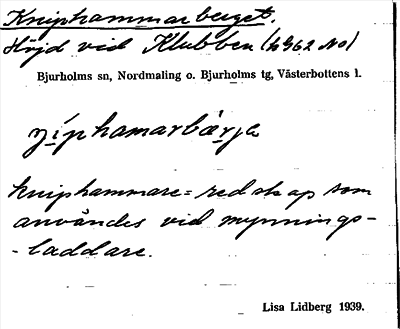 Kniphammarberget.
Höjd vid Klubben (h 962 NO)
Bjurholms sn, Nordmaling o. Bjurholms tg, Västerbottens l.
kniphammare = redskap som
användes vid mynnings-
- laddare.
Lisa Lidberg 1939.